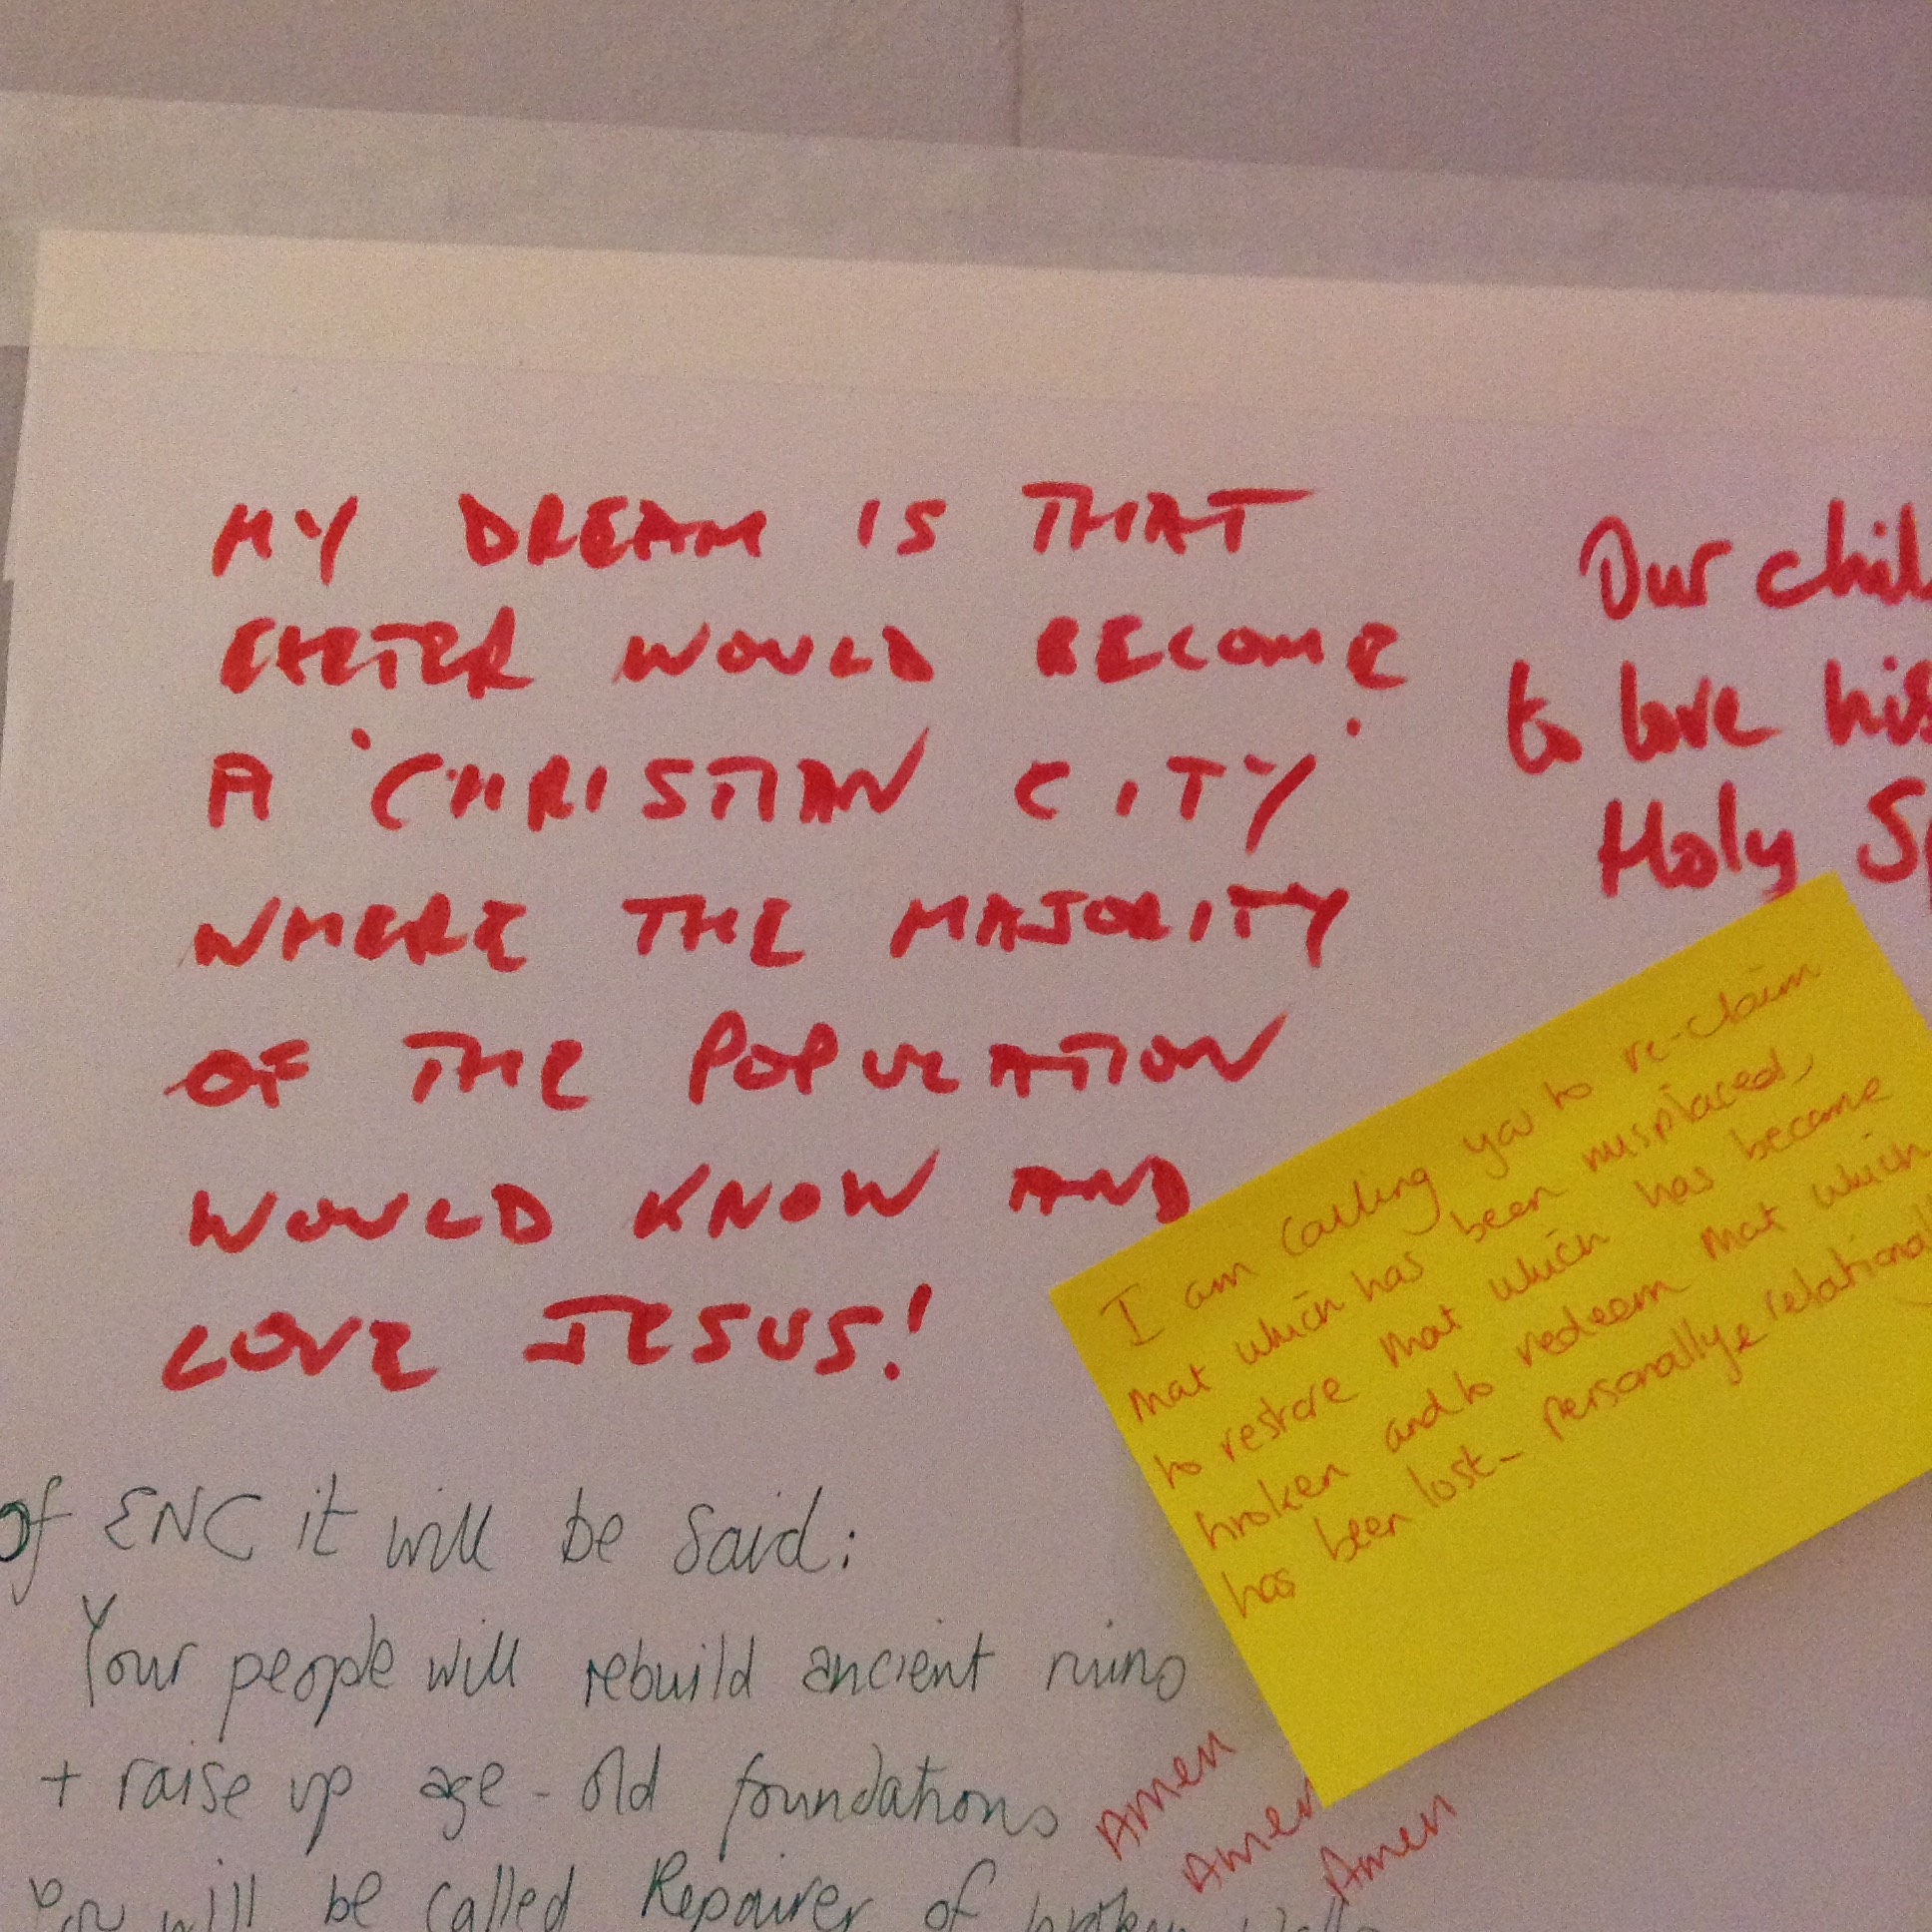 MY DREAM IS THAT
EXETER WOULD BECOME
A 'CHRISTIAN CITY'
WHERE THE MAJORITY
OF THE POPULATION
WOULD KNOW AND
LOVE JESUS!
Our chil
to love his
Holy Sp
I am calling you to re-claim
that which has been misplaced,
to restore that which has become
broken and to redeem that which
has been lost - personally & relational
of ENC it will be said:
Your people will rebuild ancient ruins
+ raise up age-old foundations
You will be called Repairer of broken walls
Amen
Amen
Amen